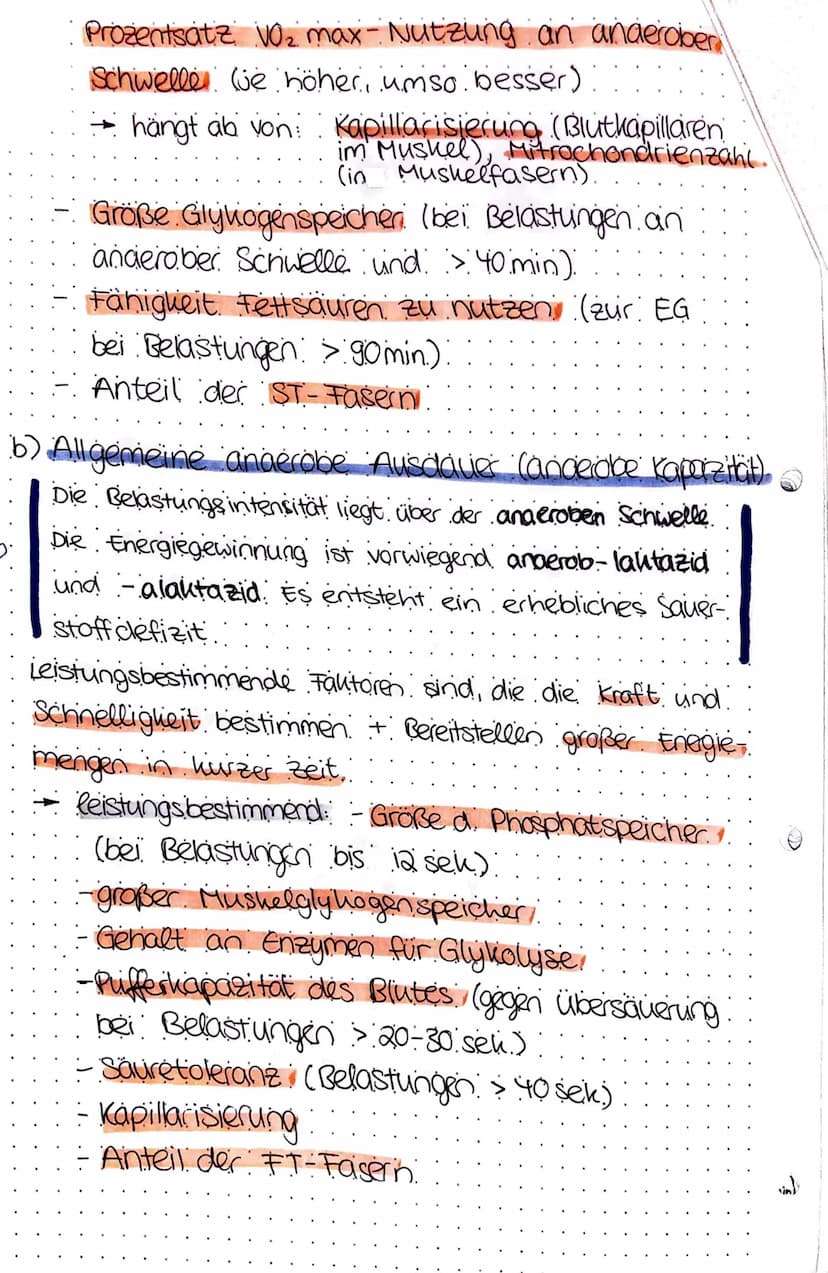 Prozentsatz VO₂ max-Nutzung an anaerober
Schwelle (je höher, umso besser)
→ hängt ab von: Kapillarisierung (Blutkapillaren
im Muskel), Mitrochondrienzahl
(in Muskelfasern)
- Größe Glykogenspeicher (bei Belastungen an
anaerober Schwelle und > 40 min)
- Fähigkeit Fettsäuren zu nutzen (zur EG
bei Belastungen > 90 min)
- Anteil der ST-Fasern
b) Allgemeine anaerobe Ausdauer (anaerobe Kaparzität)
Die Belastungsintensität liegt über der anaeroben Schwelle.
Die Energiegewinnung ist vorwiegend anaerob-laktazid
und -alaktazid. Es entsteht ein erhebliches Sauer-
stoffdefizit.
Leistungsbestimmende Faktoren sind, die die Kraft und
Schnelligkeit bestimmen + Bereitstellen großer Energie-
mengen in kurzer Zeit.
→ leistungsbestimmend: - Größe d. Phosphatspeicher
(bei Belastungen bis 12 sek)
- großer Muskelglykogenspeicher
- Gehalt an Enzymen für Glykolyse
- Pufferkapazität des Blutes (gegen Übersäuerung
bei Belastungen > 20-30 sek.)
- Säuretoleranz (Belastungen > 40 sek)
- Kapillarisierung
- Anteil der FT-Fasern